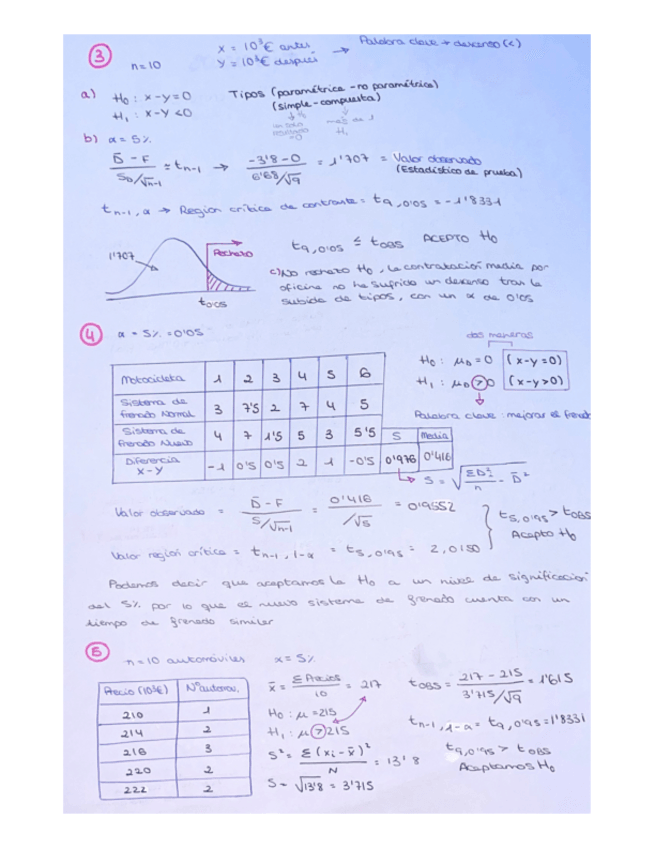 3
n=10
x = 10³€ antes
y = 10³€ después
→ Palabra clave → descenso (<)
a) H₀ : x-y=0
H₁ : x-y <0
Tipos (paramétrica - no paramétrica)
(simple - compuesta)
un solo
=0
más de 1
H₁
b) α = 5%
D̄ - F / S_D/√n-1 ≈ t n-1 → -3'8 - 0 / 6'68/√9 = 1'707 = Valor observado
(Estadístico de prueba)
t n-1, α → Región crítica de contraste = t 9, 0'05 = -1'8331
1'707
Rechazo
t 0'05
t 9, 0'05 ≤ t OBS ACEPTO H₀
c) No rechazo H₀, la contratación media por
oficina no ha sufrido un descenso tras la
subida de tipos, con un α de 0'05
4
α = 5% = 0'05
dos maneras
H₀ : μ_D = 0 (x-y=0)
H₁ : μ_D > 0 (x-y>0)
Palabra clave : mejorar el frenado
Motocicleta 1 2 3 4 5 6
Sistema de frenado Normal 3 7'5 2 7 4 5
Sistema de frenado Nuevo 4 7 1'5 5 3 5'5 S Media
Diferencia x-y -1 0'5 0'5 2 1 -0'5 0'976 0'416
S = √ΣD²ᵢ/n - D̄²
Valor observado = D̄ - F / S/√n-1 = 0'416 / /√5 = 0'9552
Valor región crítica = t n-1, 1-α = t 5, 0'95 = 2,0150
t 5, 0'95 > t OBS
Acepto H₀
Podemos decir que aceptamos la H₀ a un nivel de significación
del 5% por lo que el nuevo sistema de frenado cuenta con un
tiempo de frenado similar
5
n = 10 automóviles α = 5%
Precio (10³€) Nº autom.
210 1
214 2
216 3
220 2
222 2
x̄ = Σ Precios / 10 = 217
H₀ : μ = 215
H₁ : μ > 215
S² = Σ(xᵢ - x̄)² / N = 13'8
S = √13'8 = 3'715
t OBS = 217 - 215 / 3'715/√9 = 1'615
t n-1, 1-α = t 9, 0'95 = 1'8331
t 9, 0'95 > t OBS
Aceptamos H₀